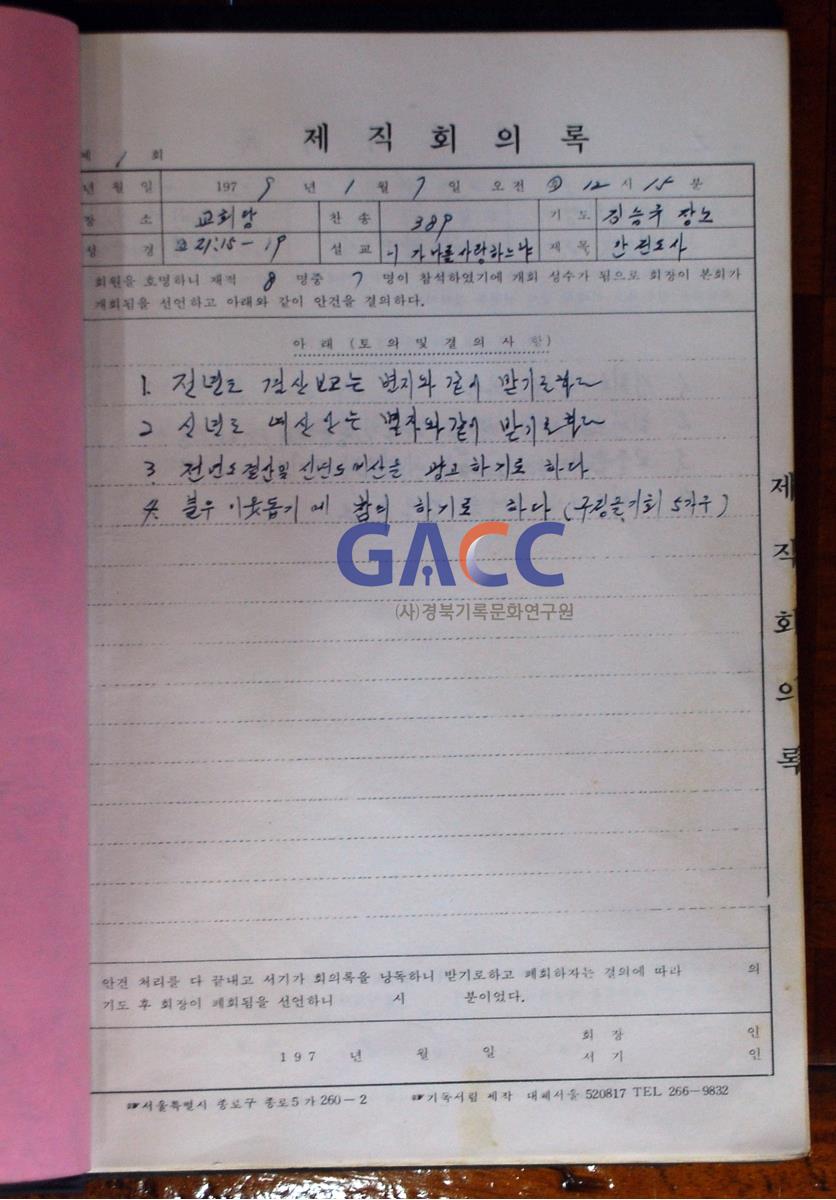 제 직 회 의 록
제 1 회
년 월 일 197 9 년 1 월 7 일 오전 후 12 시 15 분
장 소 교회당 찬 송 389 기 도 김승우 장노
성 경 요 21:15-19 설 교 니가 나를 사랑하느냐 제 목 안 전도사
회원을 호명하니 재적 8 명중 7 명이 참석하였기에 개회 성수가 됨으로 회장이 본회가
개회됨을 선언하고 아래와 같이 안건을 결의하다.
아 래 (토 의 및 결 의 사 항)
1. 전년도 결산보고는 별지와 같이 받기로하다
2 신년도 예산안는 별지와같이 받기로하다
3. 전년도결산및 신년도예산을 광고하기로 하다
4. 불우 이웃돕기에 합의 하기로 하다 (5가구)
GACC
(사)경북기록문화연구원
제 직 회 의 록
안건 처리를 다 끝내고 서기가 회의록을 낭독하니 받기로하고 폐회하자는 결의에 따라 의
기도 후 회장이 폐회됨을 선언하니 시 분이었다.
회 장 인
197 년 월 일 서 기 인
☞서울특별시 종로구 종로5가 260-2 ☞기독서림 제작 대체서울 520817 TEL 266-9832